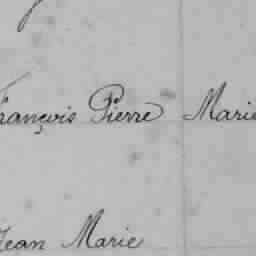 François Pierre Marie
Jean Marie